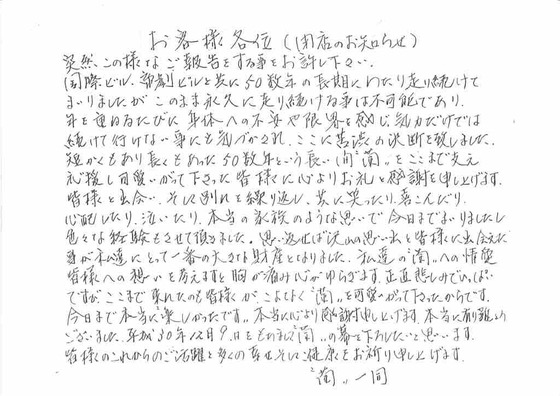 お客様各位(閉店のお知らせ)
突然、この様なご報告をする事をお許し下さい。
国際ビル、帝劇ビルと共に50数年の長期にわたり走り続けて
まいりましたがこのまま永久に走り続ける事は不可能であり、
年を重ねるたびに身体への不安や限界を感じ気力だけでは
続けて行けない事にも気づかされ、ここに苦渋の決断を致しました。
短かくもあり長くもあった50数年という長い間〝蘭〟をここまで支え
応援し可愛いがって下さった皆様に心よりお礼と感謝を申し上げます。
皆様と出会い、そして別れを繰り返し、共に笑ったり、喜こんだり、
心配したり、泣いたり、本当の家族のような思いで今日までまいりましたし
色々な経験もさせて頂きました。思い返せば沢山の思い出と皆様に出会えた
事が私達にとって一番の大きな財産となりました。私達の〝蘭〟への情熱
皆様への想いを考えますと胸が痛み心がゆらぎます。正直悲しみでいっぱい
ですがここまで来れたのも皆様が、こよなく〝蘭〟を可愛がって下さったからです。
今日まで本当に楽しかったです。本当に心より感謝申し上げます。本当に有難う
ございました。平成30年12月9日をもちまして〝蘭〟の幕を下ろしたいと思います。
皆様のこれからのご活躍と多くの幸せそして健康をお祈り申し上げます。
〝蘭〟一同